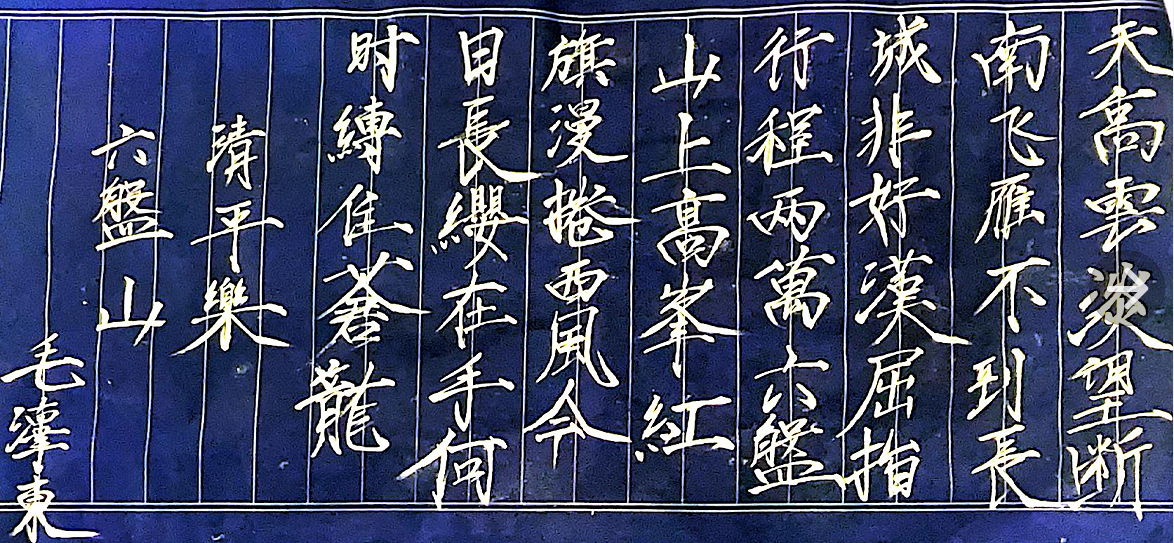 天高雲淡望断
南飞雁不到長
城非好漢屈指
行程两萬六盤
山上高峯紅
旗漫捲西風今
目長纓在手何
时縛住蒼龍
清平樂
六盤山
毛澤東